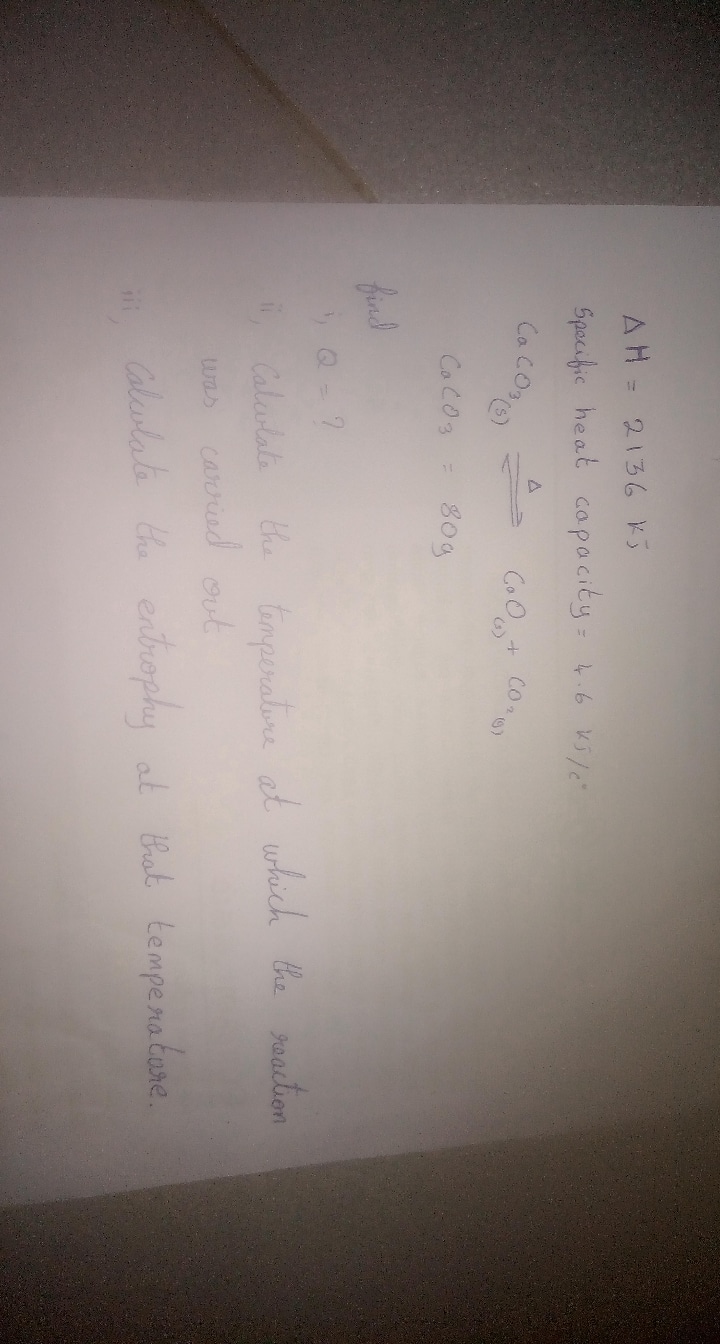 ΔH = 2136 kJ
Specific heat capacity = 4.6 kJ/c°
CaCO₃(s) ⇌ Δ CaO(s) + CO₂(g)
CaCO₃ = 80g
find
i, Q = ?
ii, Calculate the temperature at which the reaction
was carried out
iii, Calculate the entrophy at that temperature.